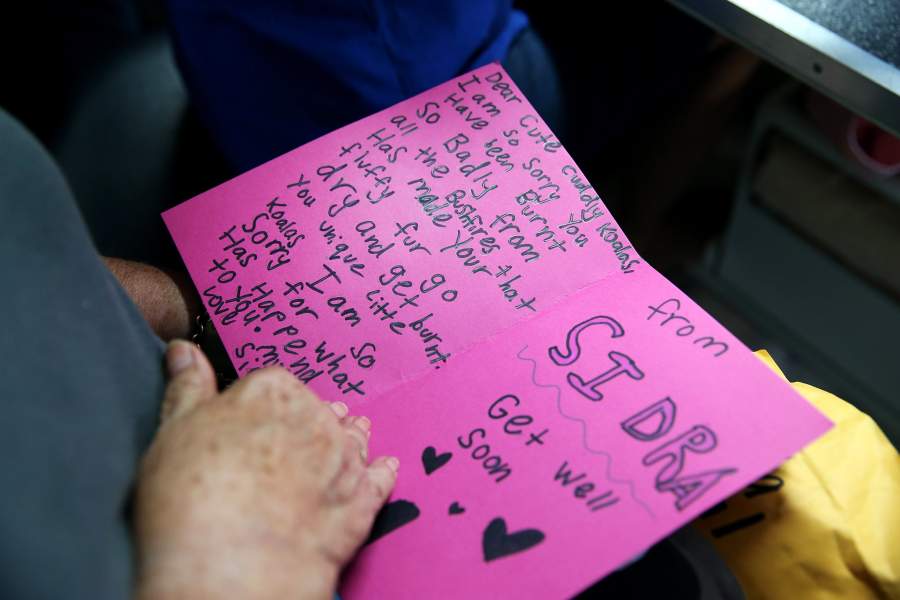 Dear Cute cuddly Koalas,
I am so sorry You
Have been Burnt
So Badly from
all the Bushfires that
Has made Your
fluffy fur go
dry and get burnt.
You unique little
Koalas I am so
Sorry for what
Has Happend
to You.
love
from
SIDRA
Get well
soon